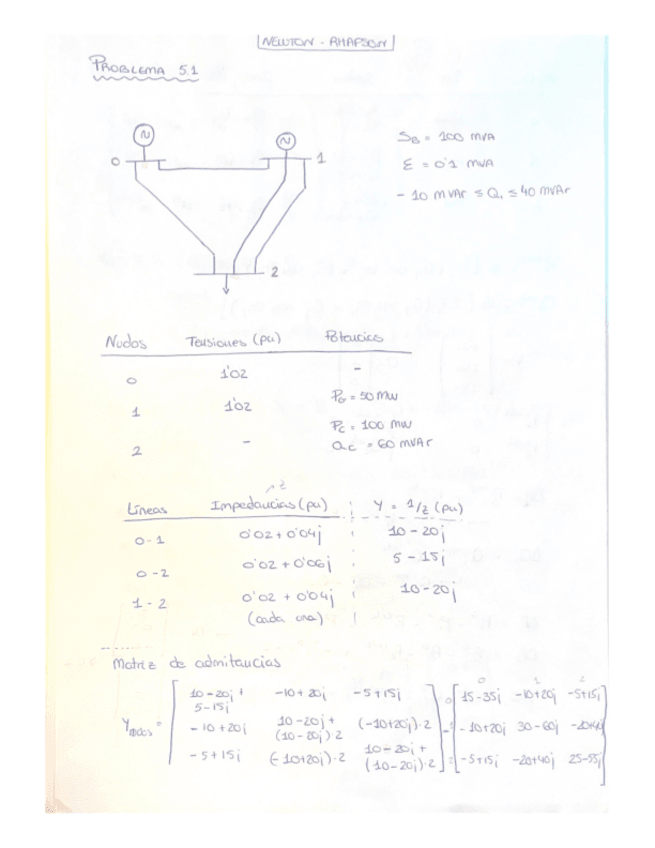 NEWTON - RHAPSON
PROBLEMA 5.1
N
N
0
1
2
SB = 100 MVA
ε = 0'1 MVA
- 10 MVAr ≤ Q1 ≤ 40 MVAr
Nudos Tensiones (pu) Potencias
0 1'02 -
1 1'02 PG = 50 MW
2 - PC = 100 MW
QC = 60 MVAr
z
Líneas Impedancias (pu) Y = 1/z (pu)
0-1 0'02 + 0'04j 10 - 20j
0-2 0'02 + 0'06j 5 - 15j
1-2 0'02 + 0'04j 10-20j
(cada una)
Matriz de admitancias
0 1 2
Ynudos = [ 10-20j + 5-15j -10+20j -5+15j ] = 0 [ 15-35j -10+20j -5+15j ]
-10+20j 10-20j + (10-20j)·2 (-10+20j)·2 1 -10+20j 30-60j -20+40j
-5+15j (-10+20j)·2 10-20j + (10-20j)·2 2 -5+15j -20+40j 25-55j